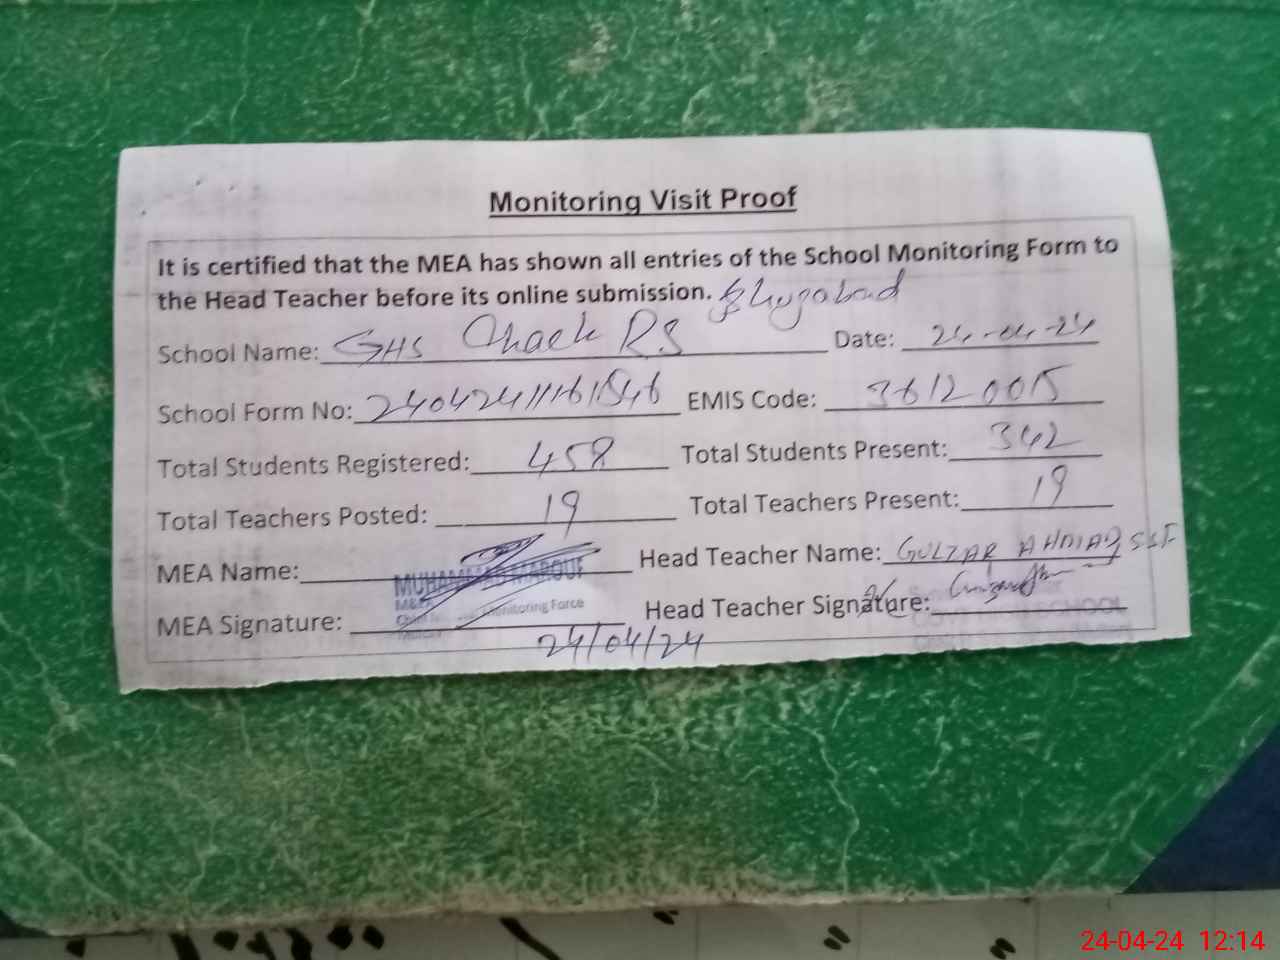 Monitoring Visit Proof
It is certified that the MEA has shown all entries of the School Monitoring Form to
the Head Teacher before its online submission.
School Name: GHS Chack RS Date: 24-04-24
School Form No: EMIS Code: 36120015
Total Students Registered: 458 Total Students Present: 342
Total Teachers Posted: 19 Total Teachers Present: 19
MEA Name: MUHAMMAD MAROUF Head Teacher Name: GULZAR AHMAD
MEA Signature: Monitoring Force Head Teacher Signature:
24/04/24
24-04-24 12:14